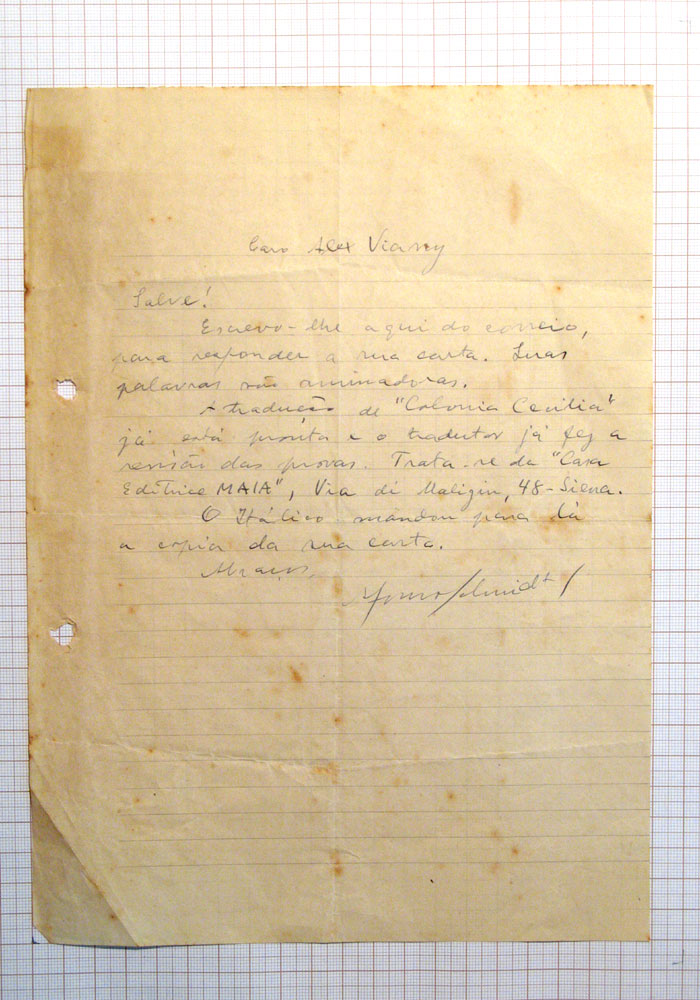 Caro Alex Viany
Salve!
Escrevo-lhe aqui do correio,
para responder a sua carta. Suas
palavras são animadoras.
A tradução de "Colonia Cecilia"
já está pronta e o tradutor já fez a
revisão das provas. Trata-se da "Casa
Editrice MAIA", Via di Malizia, 48-Siena.
O Itálico mandou para lá
a copia da sua carta.
Abraços,
Afonso Schmidt